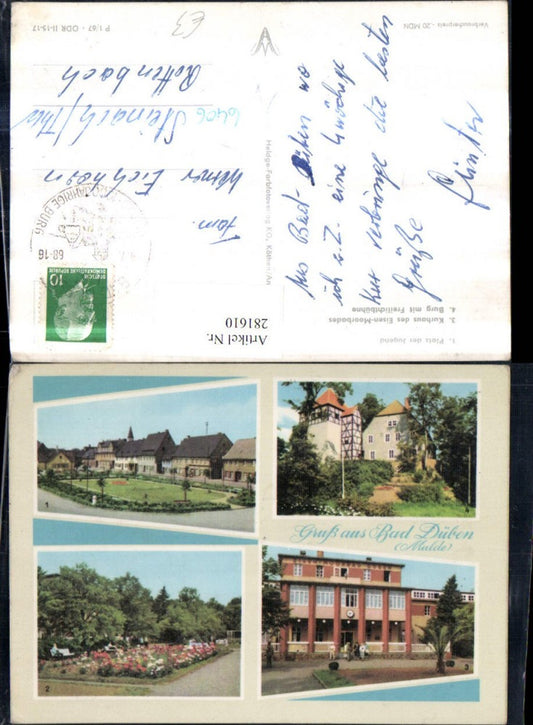 Verbraucherpreis -,20 MDN
P 1/67 · DDR II-15-17
£3
Aus Bad- Düben wo
ich z. Z. eine 4wöchige
Kur verbringe die besten
Grüße
Fam.
Werner Eichhorn
6406 Steinach/Thür
Rottenbach
Heldge-Farbfotoverlag KG., Köthen/Anh
JÄHRIGE BURG
-68-16
10
DEUTSCHE
DEMOKRATISCHE REPUBLIK
1. Platz der Jugend
3. Kurhaus des Eisen-Moorbades
4. Burg mit Freilichtbühne
Artikel Nr.
281610
Gruß aus Bad Düben
(Mulde)
1
2
3